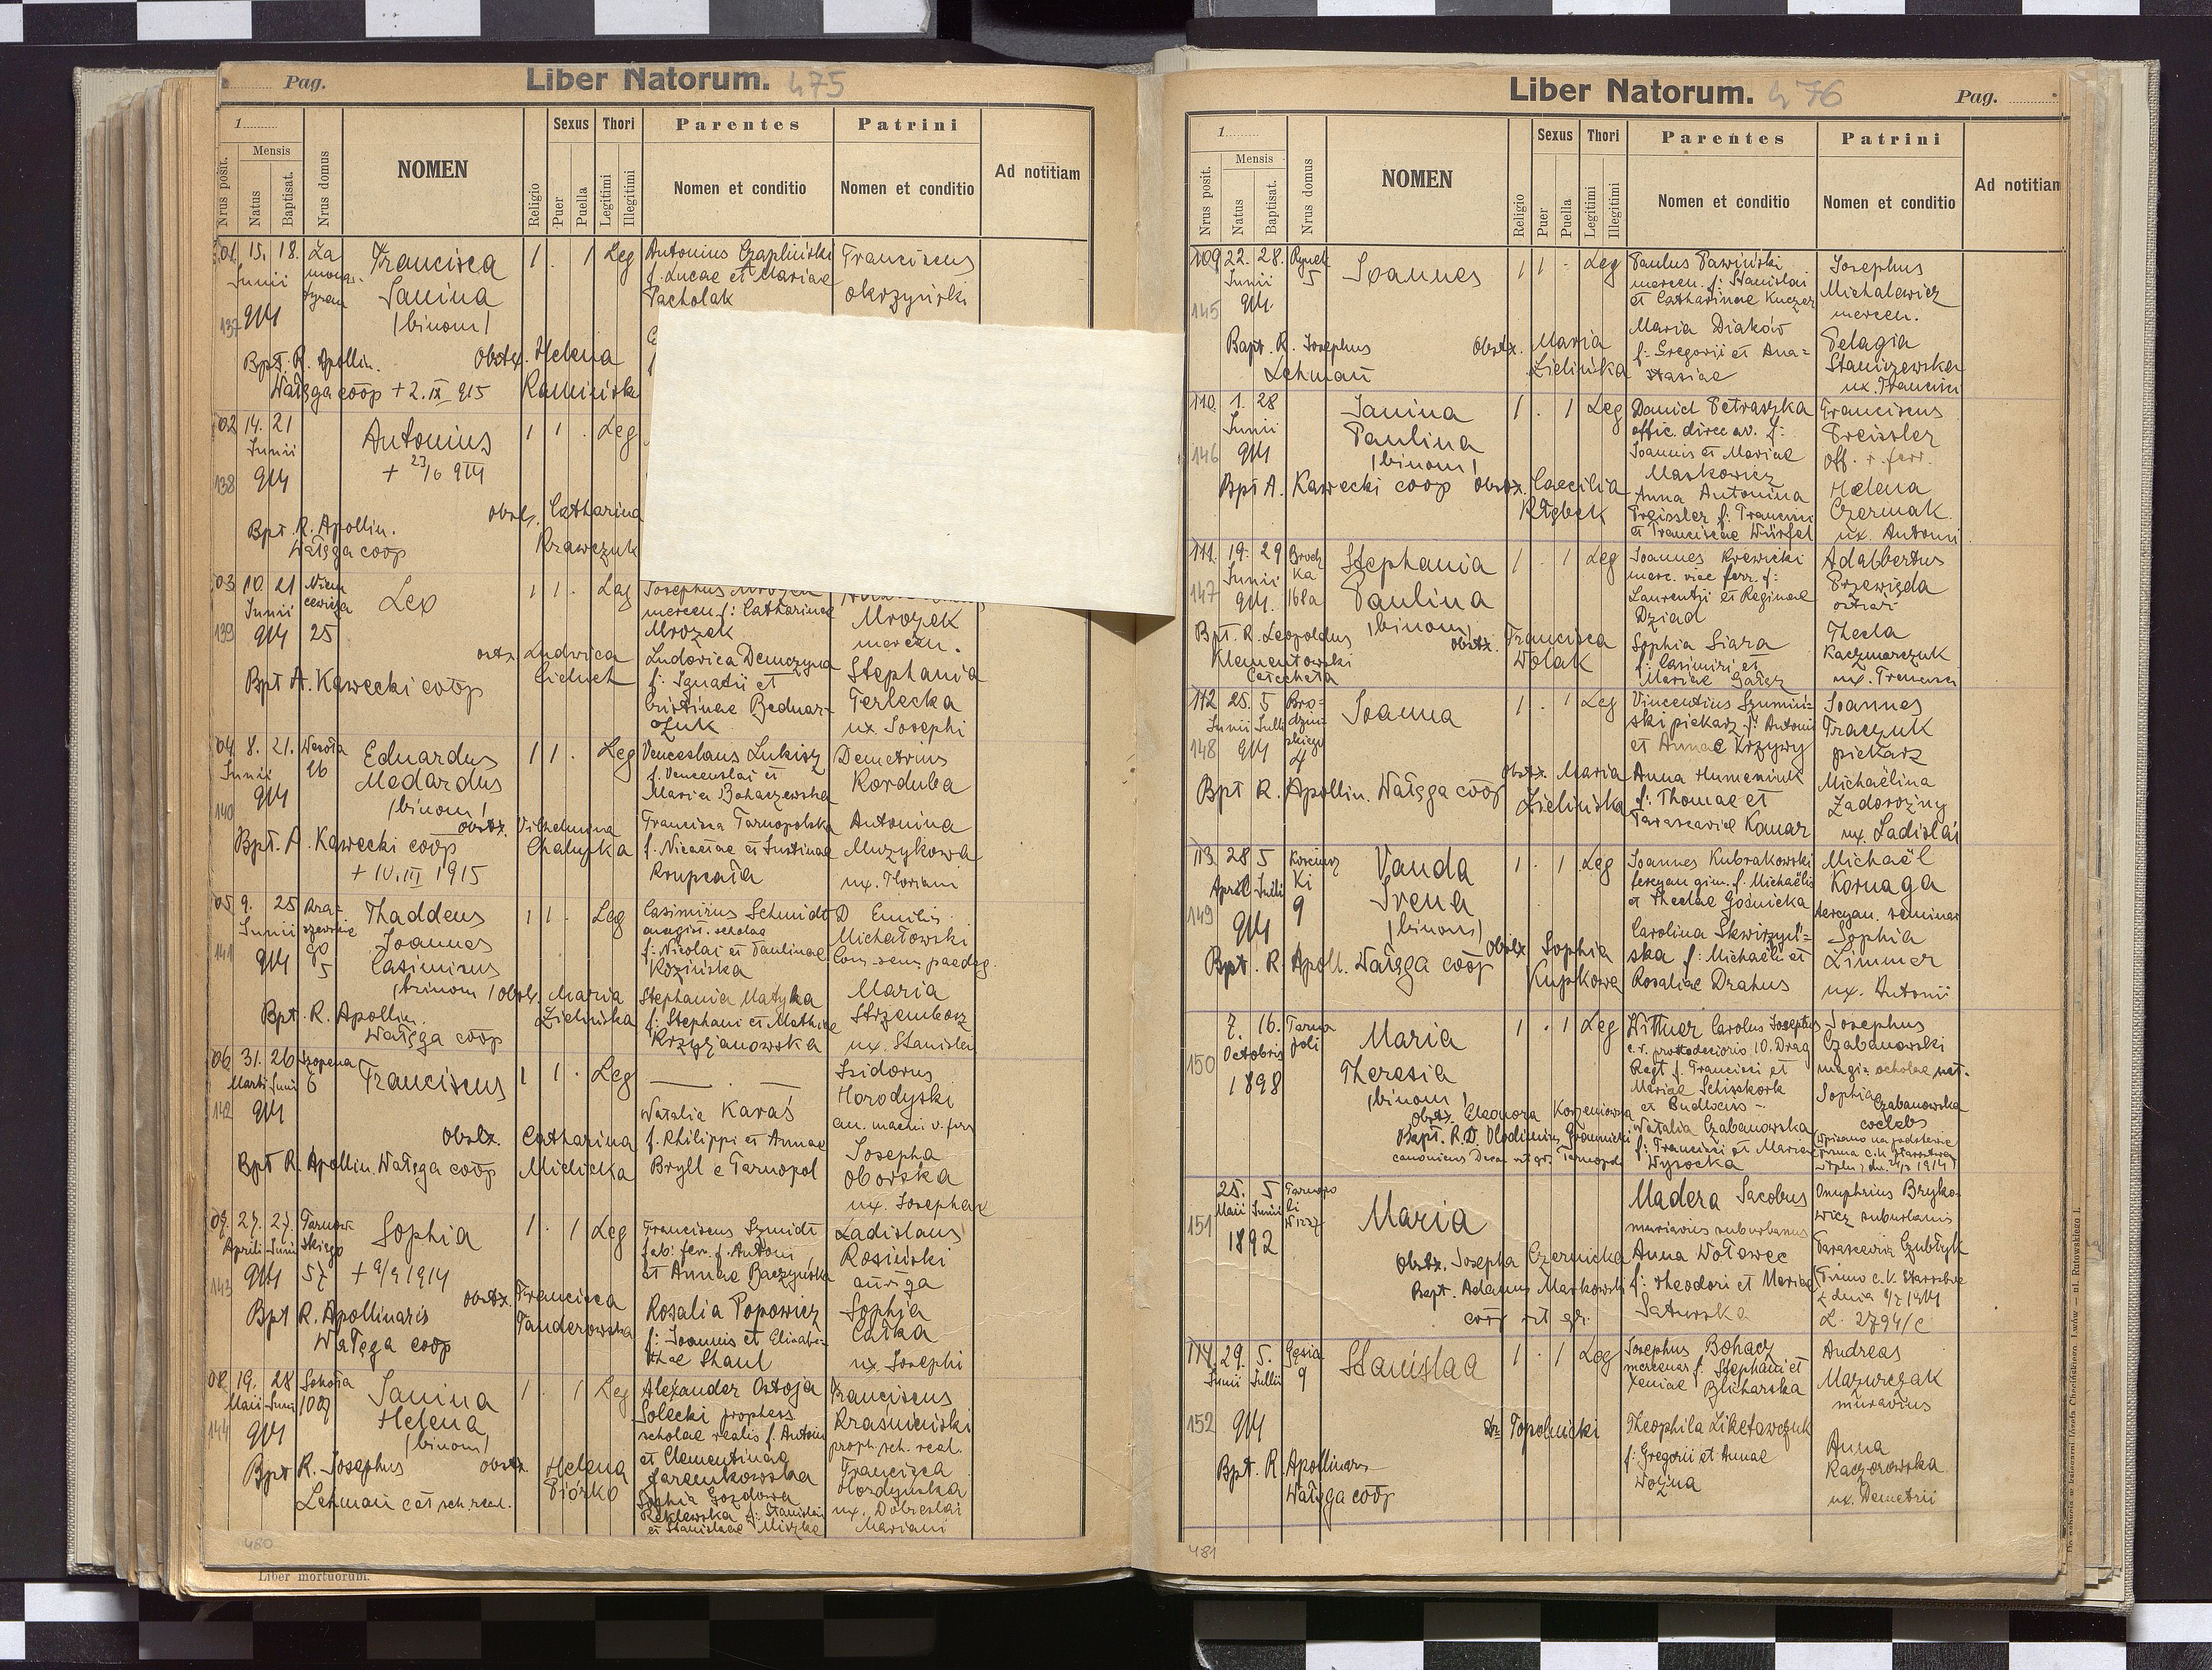 Pag.
Liber Natorum. 475
1
Mensis
Nrus posit.
Natus
Baptisat.
Nrus domus
NOMEN
Religio
Sexus
Puer
Puella
Thori
Legitimi
Illegitimi
Parentes
Nomen et conditio
Patrini
Nomen et conditio
Ad notitiam
01 15. 18. Za
Junii
914
137
Francisca
Janina
(binom)
1 . 1 Leg
Antonius Czapliński
f. Lucae et Mariae
Pacholak
Franciscus
Okrzyński
Bpt. R. Apollin.
Wałęga coop + 2. IX 915
Obstx. Helena
Kamińska
02 14. 21
Junii
138 914
Antonius
+ 23/6 914
1 1 . Leg
Obst. Catharina
Krawczuk
Bpt. R. Apollin.
Wałęga coop
03 10. 21
Junii
139 914 25
Leo
1 1 . Leg
Josephus Mrozek
mercen. f: Catharinae
Mrozek
Ludovica Demczyna
f: Ignatii et
Cristinae Bednar-
czuk
Mrozek
mercen.
Stephania
Terlecka
ux. Josephi
obstx. Ludwica
Cieluch
Bpt A. Kawecki coop
04 8. 21. Wesoła
Junii 26
914
140
Eduardus
Medardus
(binom)
1 1 . Leg
Venceslaus Lukisz
f. Venceslai et
Maria Bohaczewska
Francisca Tarnopolska
f. Nicetae et Justinae
Demetrius
Korduba
Antonina
Muzykowa
ux. Floriani
obstx. Vilhelmina
Chałupka
Bpt. A. Kawecki coop
+ 10. III 1915
05 9. 25
Junii
141 914 5
Thaddeus
Joannes
Casimirus
(trinom)
1 1 . Leg
Casimirus Schmidt
magist. scholae
f: Nicolai et Paulinae
Kozińska
Stephania Matyka
f: Stephani et Mathi
Krzyżanowska
D Emilis
Michałowski
Com. sem. paedag.
Maria
Strzembosz
ux. Stanislai
Obstx. Maria
Zielińska
Bpt. R. Apollin.
Wałęga coop
06 31. 26 Szopena
Martii Junii 6
142 914
Franciscus
1 1 . Leg
— . —
Natalia Karaś
f. Philippi et Annae
Bryll e Tarnopol
Isidorus
Horodyski
Josepha
Oborska
ux. Josephae
Obstx. Catharina
Mielnicka
Bpt R. Apollin. Wałęga coop
07. 27. 27. Tarnow
skiego
Aprili Junii
914 57
143
Sophia
+ 9/9 1914
1 . 1 Leg
Franciscus Szmidt
fab: fer. f. Antoni
et Annae Baczyńska
Rosalia Popowicz
f: Joannis et Elisabe-
thae Shaul
Ladislaus
Rosiński
auriga
Sophia
Całka
ux. Josephi
obstx. Francisca
Panderowska
Bpt R. Apollinaris
Wałęga coop
08. 19. 28
Maii Junii 1009
144 914
Janina
Helena
(binom)
1 . 1 Leg
Alexander Ostoja
Solecki profess.
scholae realis f. Antoni
et Clementinae
Jaremkowska
Sophia Gozdowa
Reklewska f: Stanislai
et Stanislaae Miszke
Franciscus
Krasumiński
prof. sch. real.
Francisca
Hordyńska
ux. Dobieslai
Mariani
obstx. Helena
Piórko
Bpt R. Josephus
Lehman cat sch. real.
480
Liber mortuorum.
Liber Natorum. 476
Pag.
1
Mensis
Nrus posit.
Natus
Baptisat.
Nrus domus
NOMEN
Religio
Sexus
Puer
Puella
Thori
Legitimi
Illegitimi
Parentes
Nomen et conditio
Patrini
Nomen et conditio
Ad notitiam
109 22. 28. Rynek
Junii 5
145 914
Joannes
1 1 - Leg
Paulus Pawiński
mercen. f: Stanislai
et Catharinae Kuczer
Maria Diaków
f: Gregorii et Ana=
stasiae
Josephus
Michalewicz
mercen.
Pelagia
Staniszewska
ux. Francisci
Bapt. R. Josephus
Lehman
Obstx. Maria
Zielińska
110. 1. 28
Junii
146 914
Janina
Paulina
(binom)
1 . 1 Leg
Daniel Petraszka
offic. direc av. f:
Joannis et Mariae
Maskowicz
Anna Antonina
Preissler f: Francisci
et Franciscae Würfel
Franciscus
Preissler
off. v. ferr.
Helena
Czermak
ux. Antoni
Bpt A. Kawecki coop
Obstx. Caecilia
Kłębek
111. 19. 29 Brodz
ka
Junii
147 914. 168a
Stephania
Paulina
(binom)
1 . 1 Leg
Joannes Krewicki
merc. viae ferr. f:
Laurentii et Reginae
Dziad
Sophia Siara
f: Casimiri et
Mariae Gałąz
Adalbertus
Przewięda
Thecla
Kaczmarczuk
Bpt. R. Leopoldus
Klementowski
Catecheta
obstx. Francisca
Wolak
112 25. 5 Bro=
dziń
skiego
Junii Julii
148 914 4
Joanna
1 . 1 Leg
Vincentius Szumiń=
ski piekarz f: Antoni
et Annae Krzywy
Anna Humeniuk
f: Thomae et
Parascaviae Komar
Joannes
Traczuk
piekarz
Michaëlina
Zadorożny
ux. Ladislai
Obstx. Maria
Zielińska
Bpt R. Apollin. Wałęga coop
113 28 5 Kościusz
ki
Aprili Julii 9
149 914
Vanda
Irena
(binom)
1 . 1 Leg
Joannes Kubrakowski
tercyan gim. f. Michaëlis
et Theclae Gośnicka
Carolina Skwirzyń=
ska f: Michaëli et
Rosaliae Drahus
Michaël
Kornaga
tercyan. seminar
Sophia
Zimmer
ux. Antonii
Obstx. Sophia
Kupkowa
Bpt. R. Apoll. Wałęga coop
7. 16. Tarno
poli
Octobris
150 1898
Maria
Theresia
(binom)
1 . 1 Leg
Wittner Carolus Josephus
10. Drag
Regt f. Francisci et
Mariae Schisskork
et Budlovics -
Natalia Czabanowska
f: Francisci et Mariae
Wysocka
Josephus
Czabanowski
magis. scholae
Sophia
Czabanowska
coelebs
Wpisano na podstawie
Pisma c.k. Starostwa
1914
Obstx. Eleonora Korzeniowska
Bapt. R.D. Vlodimirus Gromnicki
canonicus Decan rit gr. Tarnopol
25. 5 Tarnopo
li
Maii Junii
151 1892
Maria
Madera Jacobus
murarius suburbanus
Anna Wołowec
f: Theodori et Mariae
Saturska
Onuphrius Bryko-
wicz suburbanis
Parascevia Czubłyk
Pismo c.k. Starostwa
z dnia 9/7 1914
L. 2794/c
Obstx. Josepha Czernicka
Bapt. Adamus Markowski
coop rit gr.
114. 29. 5. Gęsia
Junii Julii 9
152 914
Stanislaa
1 . 1 Leg
Josephus Bohacz
mercenar f. Stephani et
Xeniae Blicharska
Theophila Liketawczuk
f: Gregorii et Annae
Woźna
Andreas
Mazurczak
murarius
Anna
Kaczorowska
ux. Demetrii
Dr Topolnicki
Bpt. R. Apollinaris
Wałęga coop
481